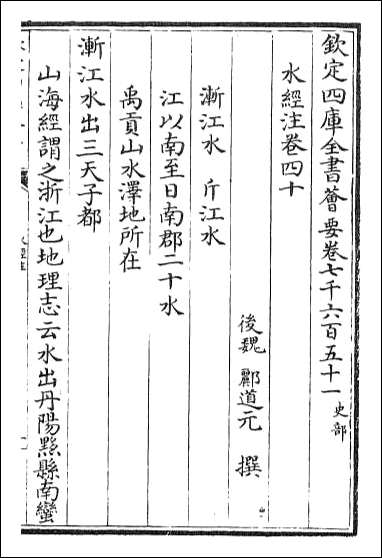 欽定四庫全書薈要卷七千六百五十一 史部
水經注卷四十
後魏 酈道元 撰
漸江水 斤江水
江以南至日南郡二十水
禹貢山水澤地所在
漸江水出三天子都
山海經謂之浙江也地理志云水出丹陽黟縣南蠻